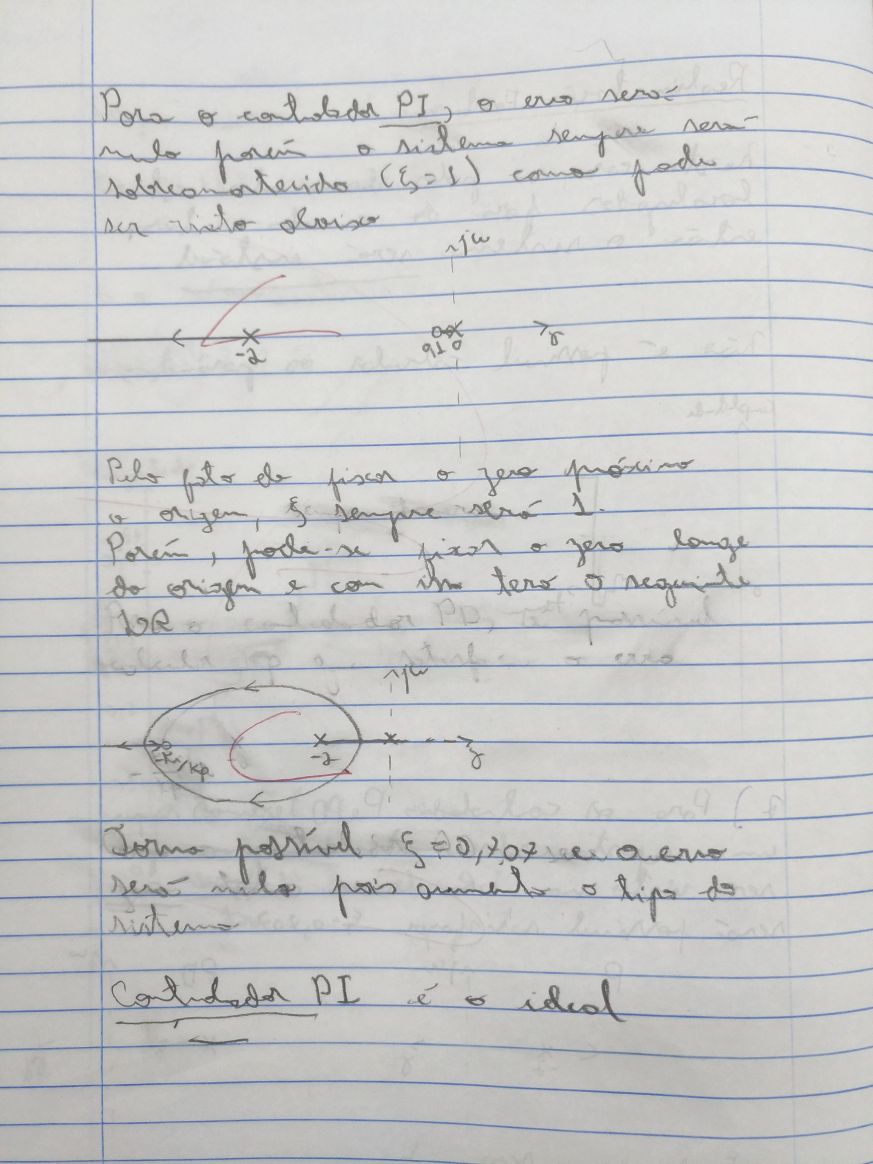 Para o controlador PI, o erro será
nulo porém o sistema sempre será
sobreamortecido (ξ=1) como pode
ser visto abaixo
jω
-2
0,1 0
σ
Pelo fato de fixar o zero próximo
a origem, ξ sempre será 1.
Porém, pode-se fixar o zero longe
da origem e com isso terá o seguinte
LR
jω
-2
-Ki/Kp
Torna possível ξ=0,707 e o erro
será nulo pois aumenta o tipo do
sistema
Controlador PI é o ideal